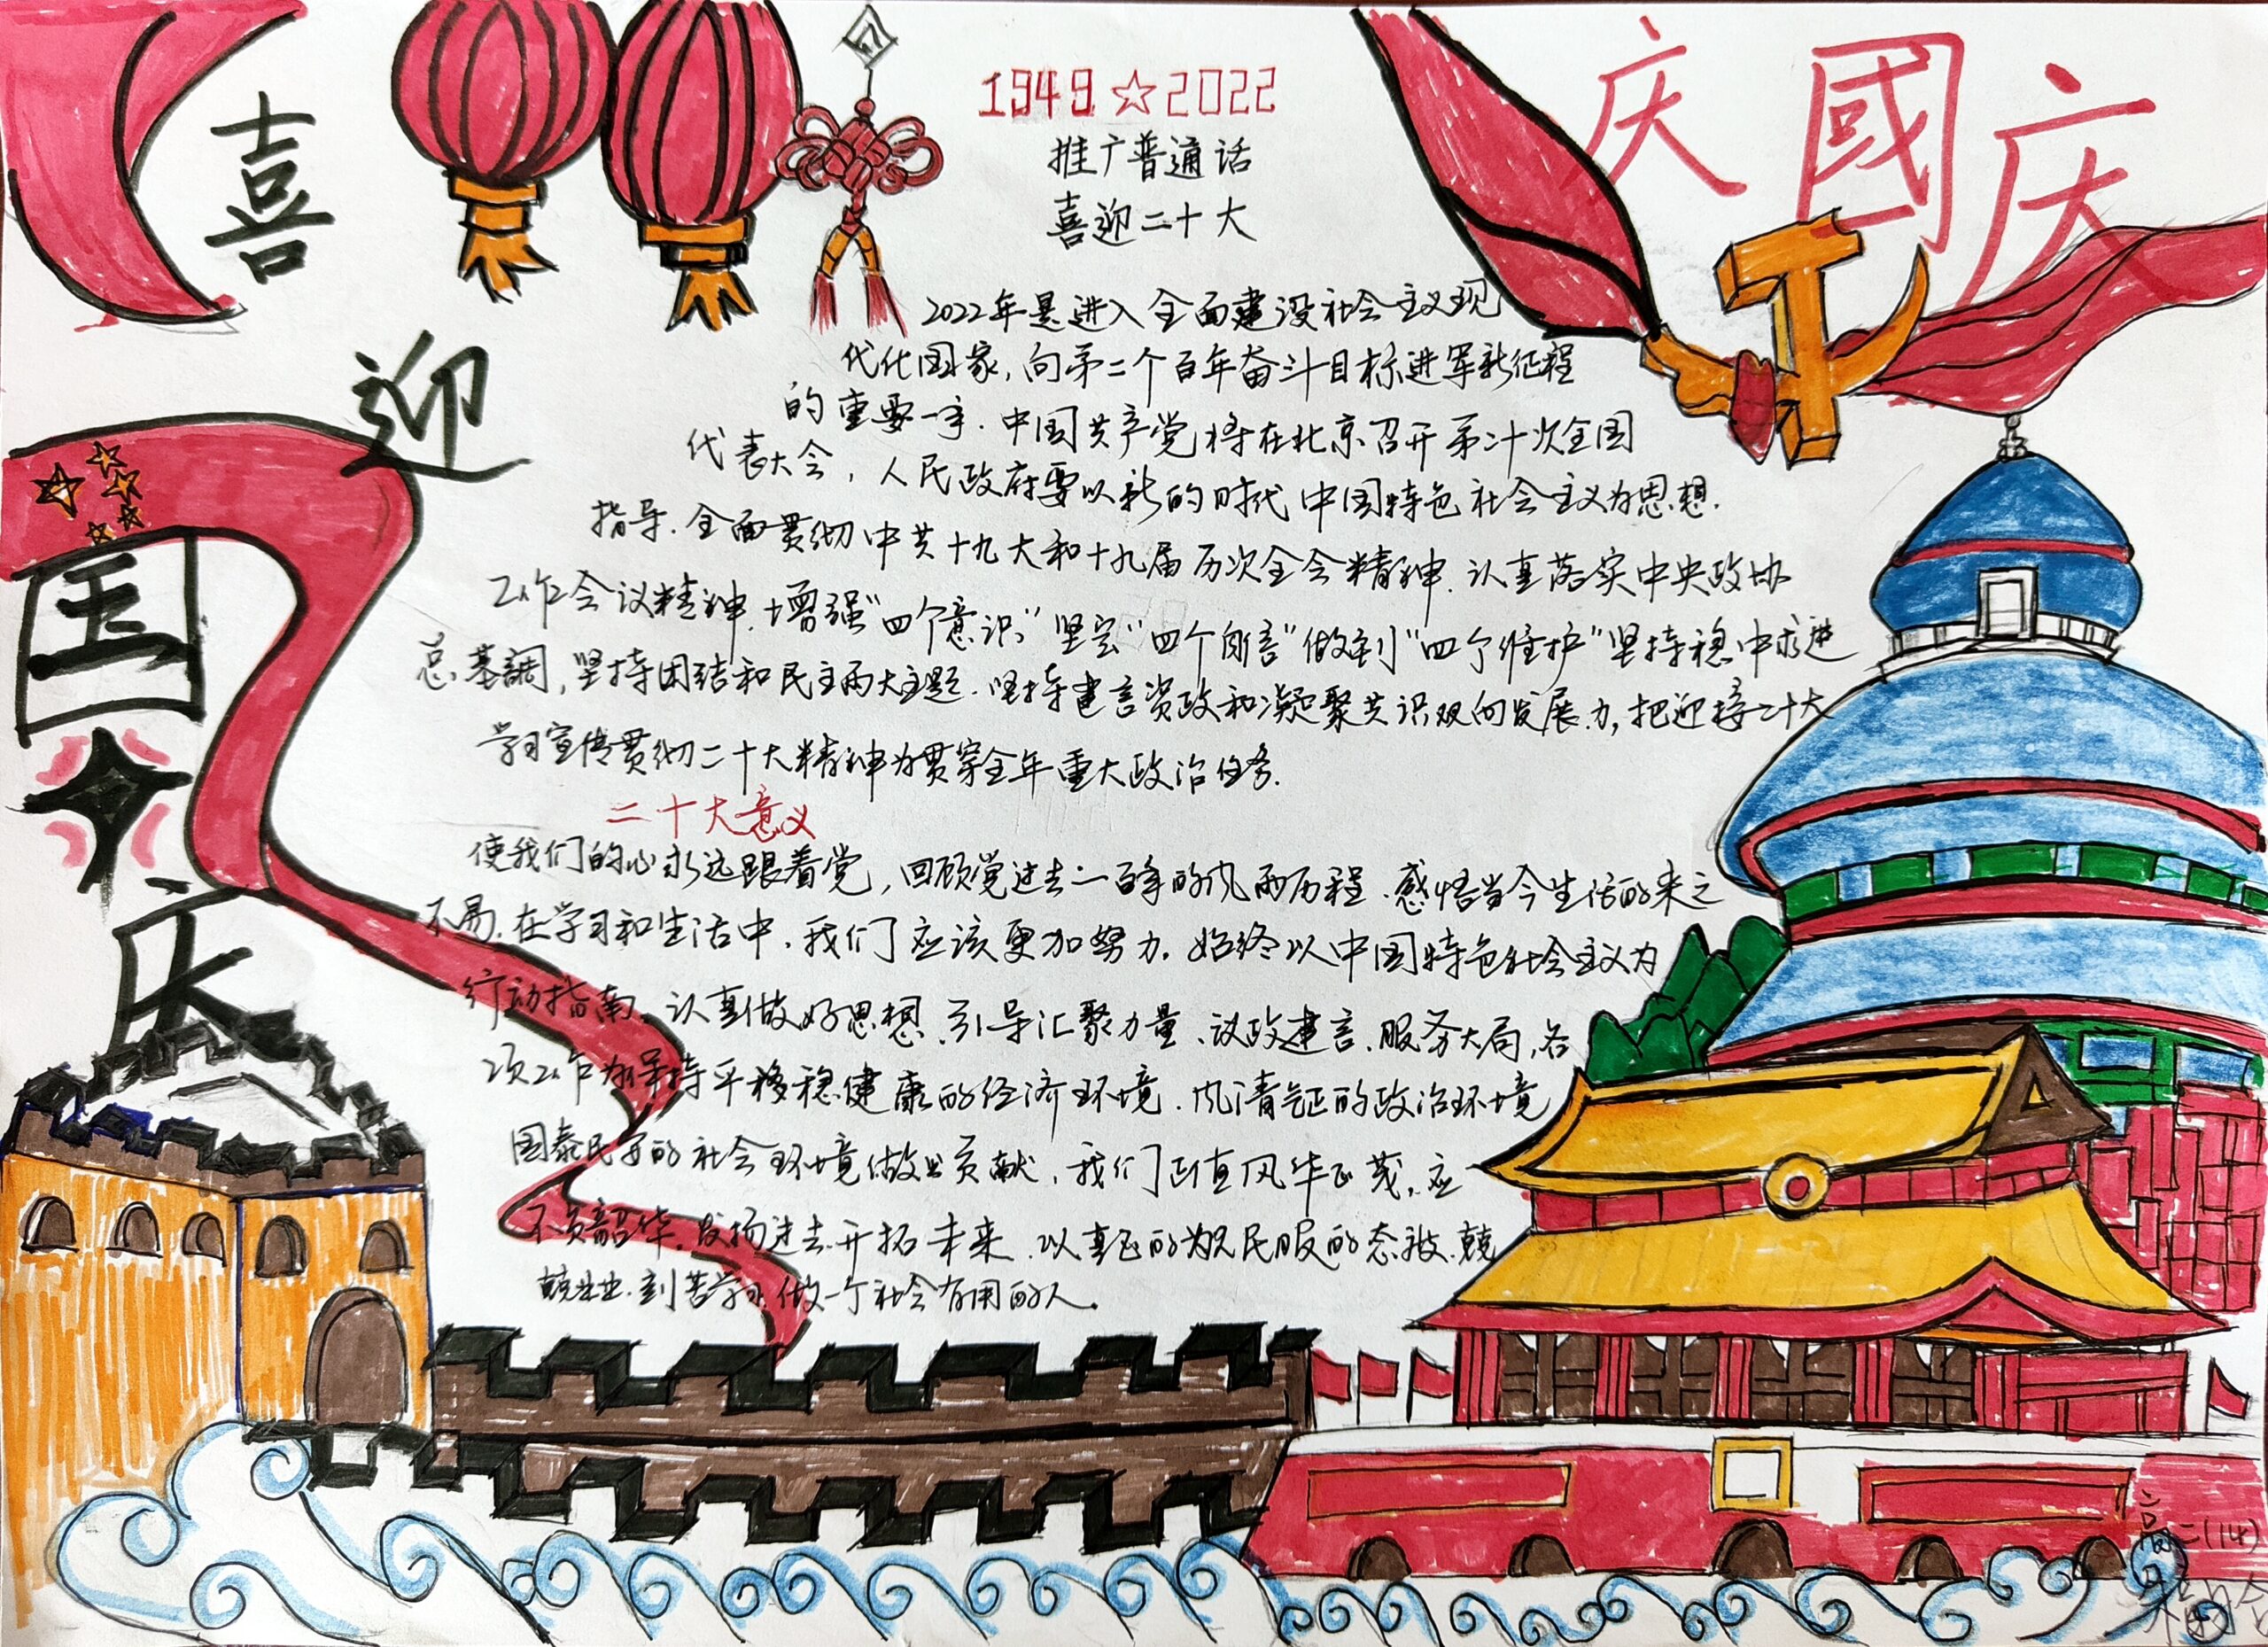 喜
迎
国
庆
1949☆2022
推广普通话
喜迎二十大
庆國庆
2022年是进入全面建设社会主义现
代化国家,向第二个百年奋斗目标进军新征程
的重要一年.中国共产党将在北京召开第二十次全国
代表大会,人民政府要以新的时代中国特色社会主义为思想.
指导.全面贯彻中共十九大和十九届历次全会精神.认真落实中央政协
工作会议精神.增强“四个意识”坚定“四个自信”做到“四个维护”坚持稳中求进
总基調,坚持团结和民主两大主题.坚持建言资政和凝聚共识双向发展力,把迎接二十大
学习宣传贯彻二十大精神为贯穿全年重大政治任务.
二十大意义
使我们的心永远跟着党,回顾党过去一百年的风雨历程.感悟当今生活的来之
不易.在学习和生活中.我们应该更加努力.始终以中国特色社会主义为
行动指南.认真做好思想.引导汇聚力量、议政建言.服务大局,各
项工作为保持平稳健康的经济环境.风清气正的政治环境
国泰民安的社会环境做出贡献,我们正值风华正茂,应
不负韶华.发扬过去.开拓未来.以真正的为人民服的态.兢
兢业业.刻苦学习.做一个社会有用的人。
高二(14)